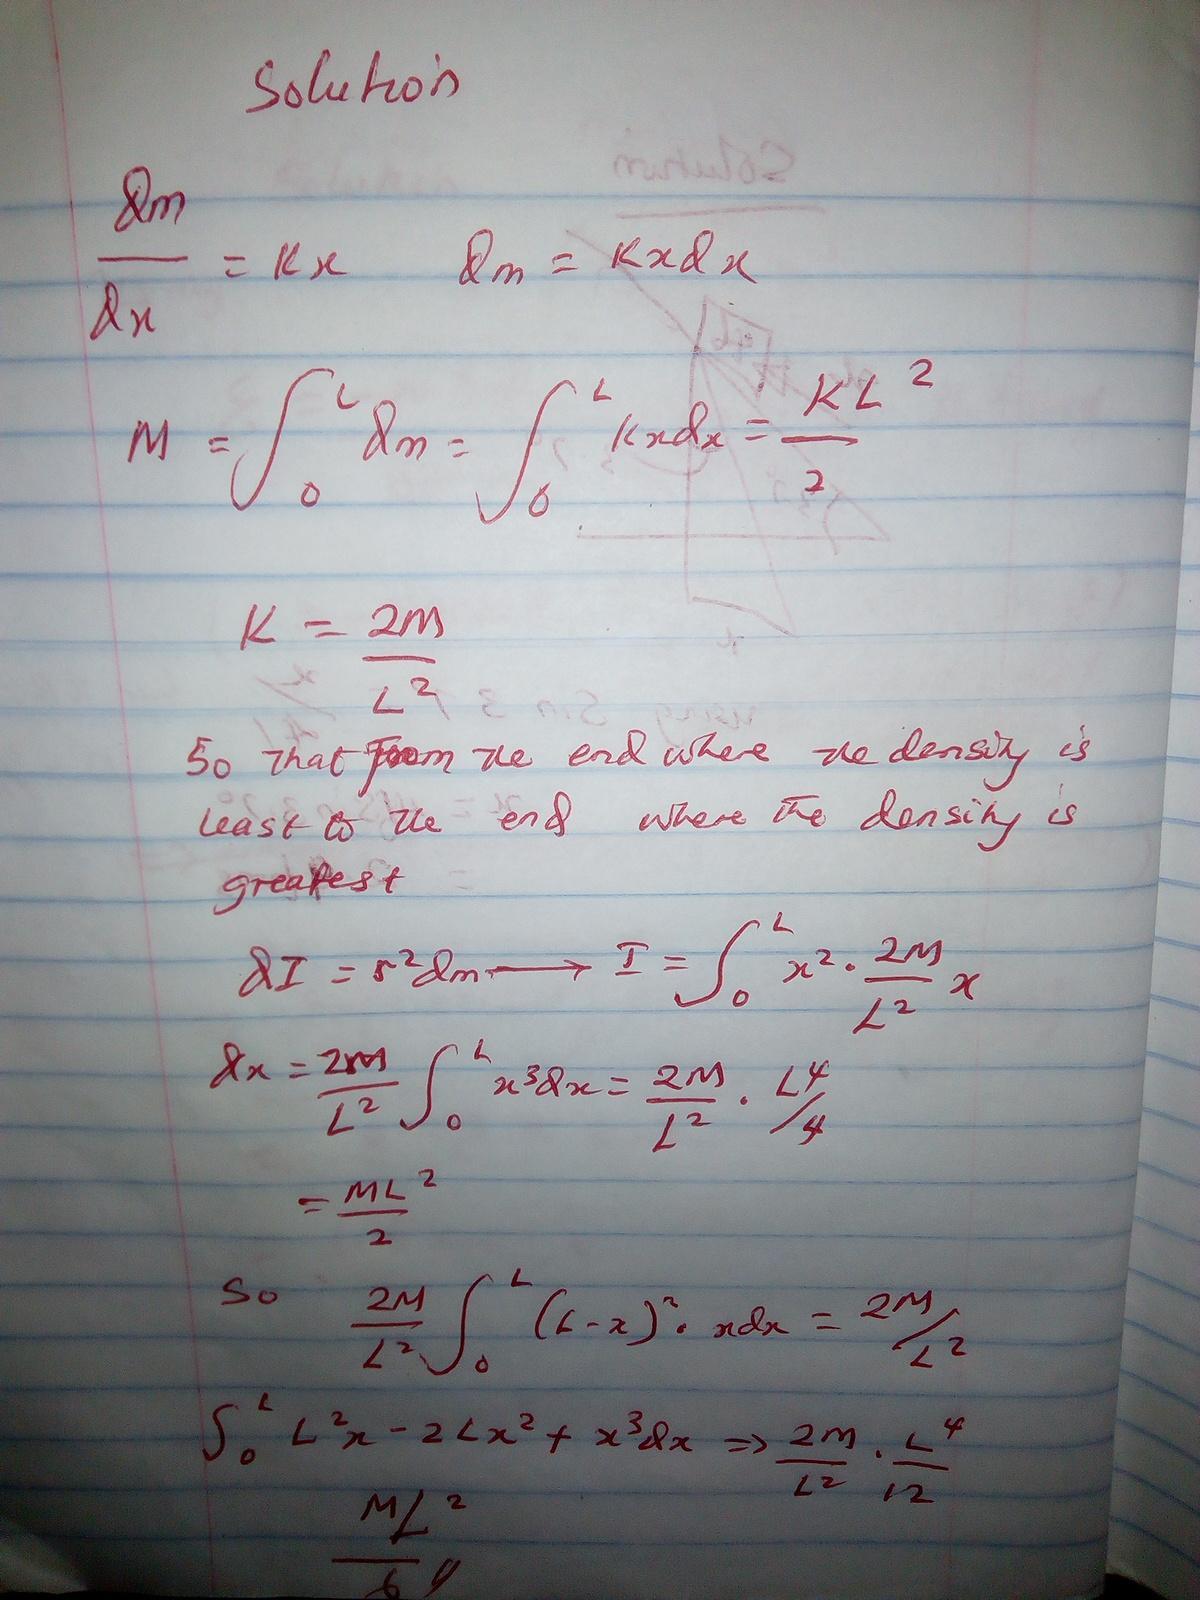 Solution
dm/dx = Kx   dm = Kxdx
M = ∫₀ᴸ dm = ∫₀ᴸ Kxdx = KL²/2
K = 2M/L²
So that from the end where the density is
least to the end where the density is
greatest
dI = r²dm ⟶ I = ∫₀ᴸ x² · 2M/L² x
dx = 2M/L² ∫₀ᴸ x³dx = 2M/L² · L⁴/4
= ML²/2
So 2M/L² ∫₀ᴸ (L-x)² · xdx = 2M/L²
∫₀ᴸ L²x - 2Lx² + x³dx => 2M/L² · L⁴/12
ML²/6